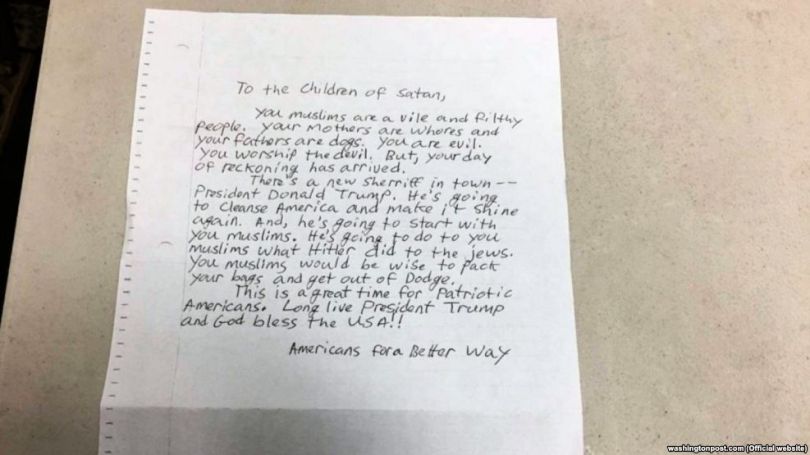 To the Children of Satan,
You muslims are a vile and filthy
people. Your mothers are whores and
your fathers are dogs. You are evil.
You worship the devil. But, your day
of reckoning has arrived.
There's a new sherriff in town --
President Donald Trump. He's going
to cleanse America and make it shine
again. And, he's going to start with
you muslims. He's going to do to you
muslims what Hitler did to the jews.
You muslims would be wise to pack
your bags and get out of Dodge.
This is a great time for Patriotic
Americans. Long live President Trump
and God bless the USA!!
Americans for a Better Way
washingtonpost.com (Official website)